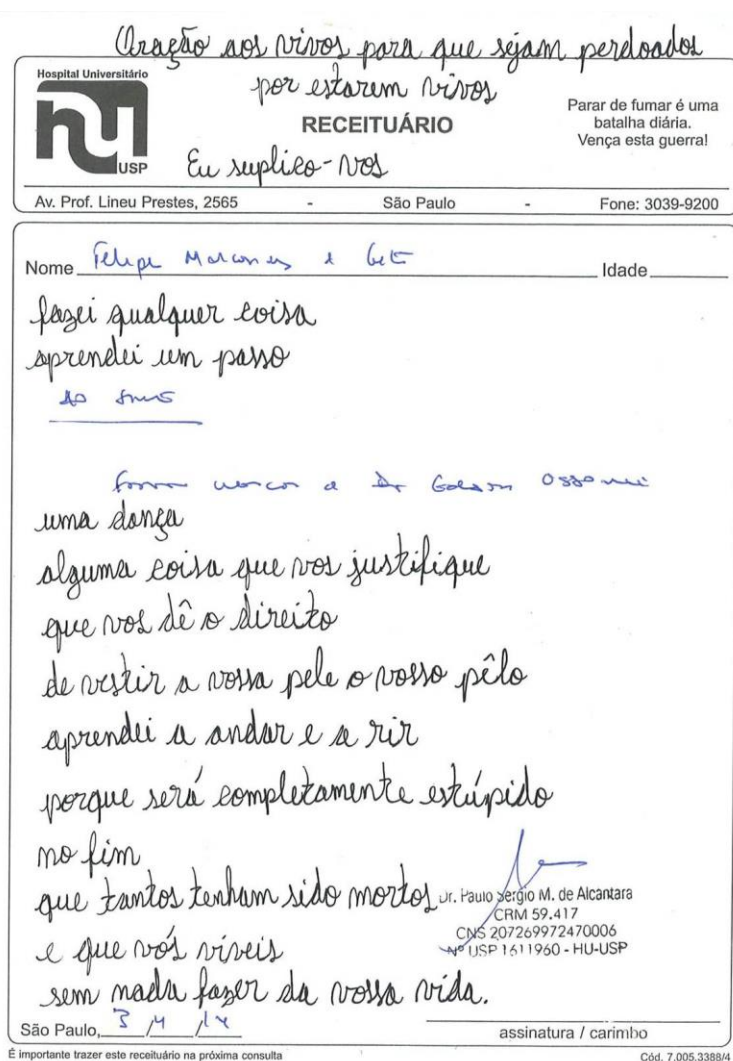 Oração aos vivos para que sejam perdoados
por estarem vivos
Hospital Universitário
hu
USP
RECEITUÁRIO
Parar de fumar é uma
batalha diária.
Vença esta guerra!
Eu suplico-vos
Av. Prof. Lineu Prestes, 2565 - São Paulo - Fone: 3039-9200
Nome Felipe Idade
fazei qualquer coisa
aprendei um passo
uma dança
alguma coisa que vos justifique
que vos dê o direito
de vestir a vossa pele o vosso pêlo
aprendei a andar e a rir
porque será completamente estúpido
no fim
que tantos tenham sido mortos
Dr. Paulo Sergio M. de Alcantara
CRM 59.417
CNS 207269972470006
Nº USP 1611960 - HU-USP
e que vós viveis
sem nada fazer da vossa vida.
São Paulo, 3 /4 /14
assinatura / carimbo
É importante trazer este receituário na próxima consulta
Cód. 7.005.3388/4